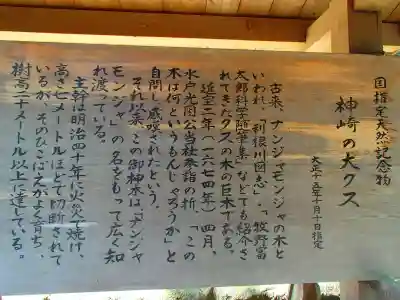 国指定天然記念物
神崎の大クス
大正十五年十月十日指定
古来、ナンジャモンジャの木と
いわれ、「利根川図志」・「牧野富
太郎科学随筆集」などでも紹介さ
れてきたクスの木の巨木である。
延宝二年(一六七四年)四月、
水戸光圀公当社参詣の折、「この
木は何というもんじゃろうか」と
自問し感嘆されたという。
それ以来、この御神木は「ナンジャ
モンジャ」の名をもって広く知
れ渡っている。
主幹は明治四十年に火災で焼け、
高さ七メートルほどで切断されて
いるが、そのひこばえがよく育ち、
樹高二十メートル以上に達している。